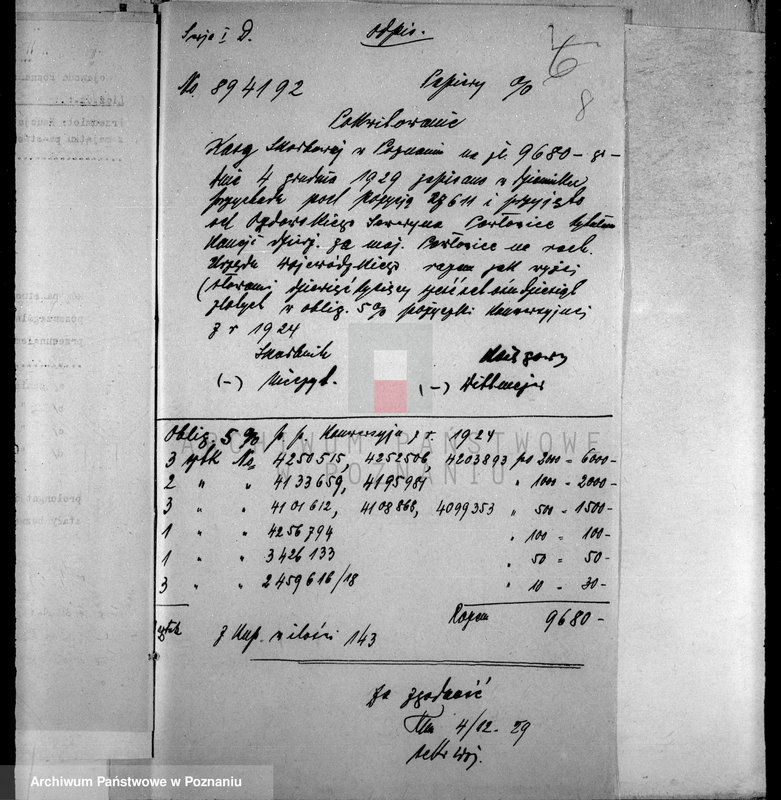 Serja I D.
Odpis.
6
8
No 894192
Papiery %
Pokwitowanie
Kasy Skarbowej w Poznaniu na zł. 9680 - gr -
dnia 4 grudnia 1929 zapisano w dzienniku
przychodu pod pozycją 27611 i przyjęto
od Ożdowskiego Seweryna Carłowice tytułem
kaucji dzierż. za maj. Carłowice na rach.
Urzędu Wojewódzkiego razem jak wyżej
(słowami dziewięć tysięcy sześćset osiemdziesiąt
złotych w oblig. 5% pożyczki konwersyjnej
z r 1924
Skarbnik
Księgowy
(-)
(-)
Oblig. 5% p. p. Konwersyja z r. 1924
3 sztk No 4250515, 4252506, 4203893 po 2000 = 6000-
2 " " 4133659, 4195981 " 1000 = 2000-
3 " " 4101612, 4108868, 4099353 " 500 = 1500-
1 " " 4256794 " 100 = 100-
1 " " 3426133 " 50 = 50-
3 " " 2459616/18 " 10 = 30-
Razem 9680-
z kup. w ilości 143
Za zgodność
4/12. 29
ARCHIWUM PAŃSTWOWE
W POZNANIU
Archiwum Państwowe w Poznaniu